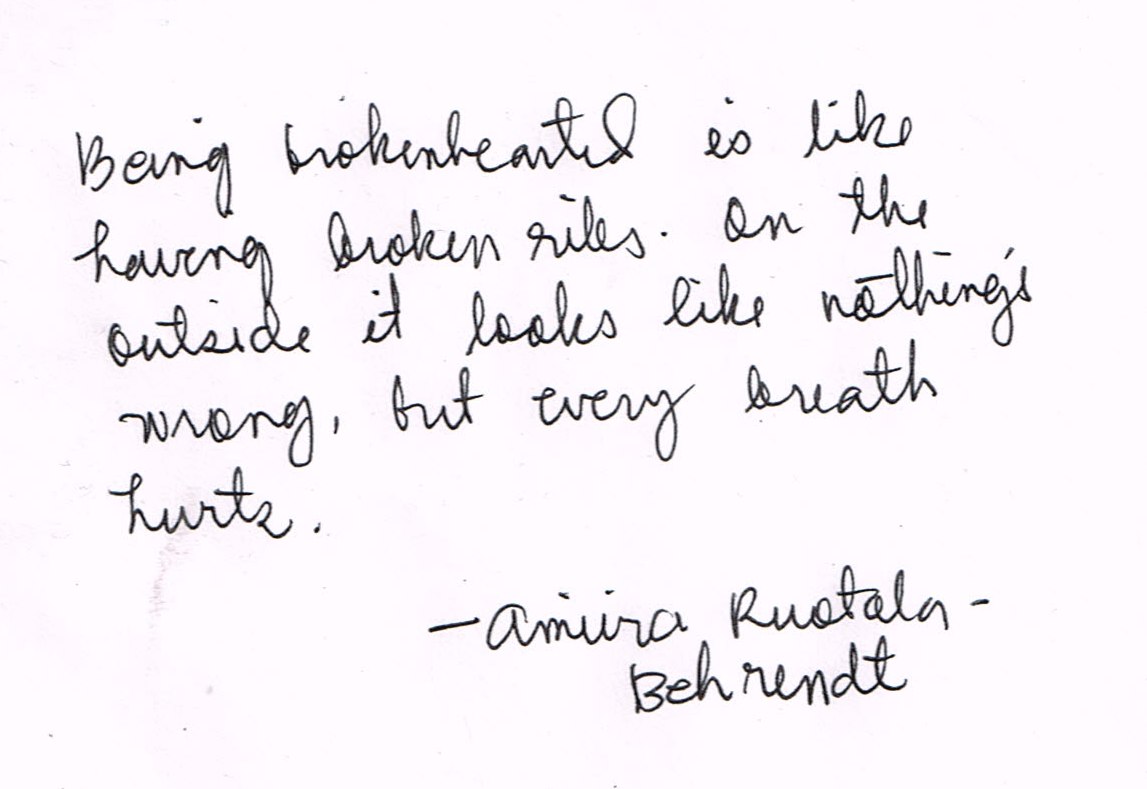 Being brokenhearted is like
having broken ribs. On the
outside it looks like nothing's
wrong, but every breath
hurts.
- Amiira Ruotola -
Behrendt